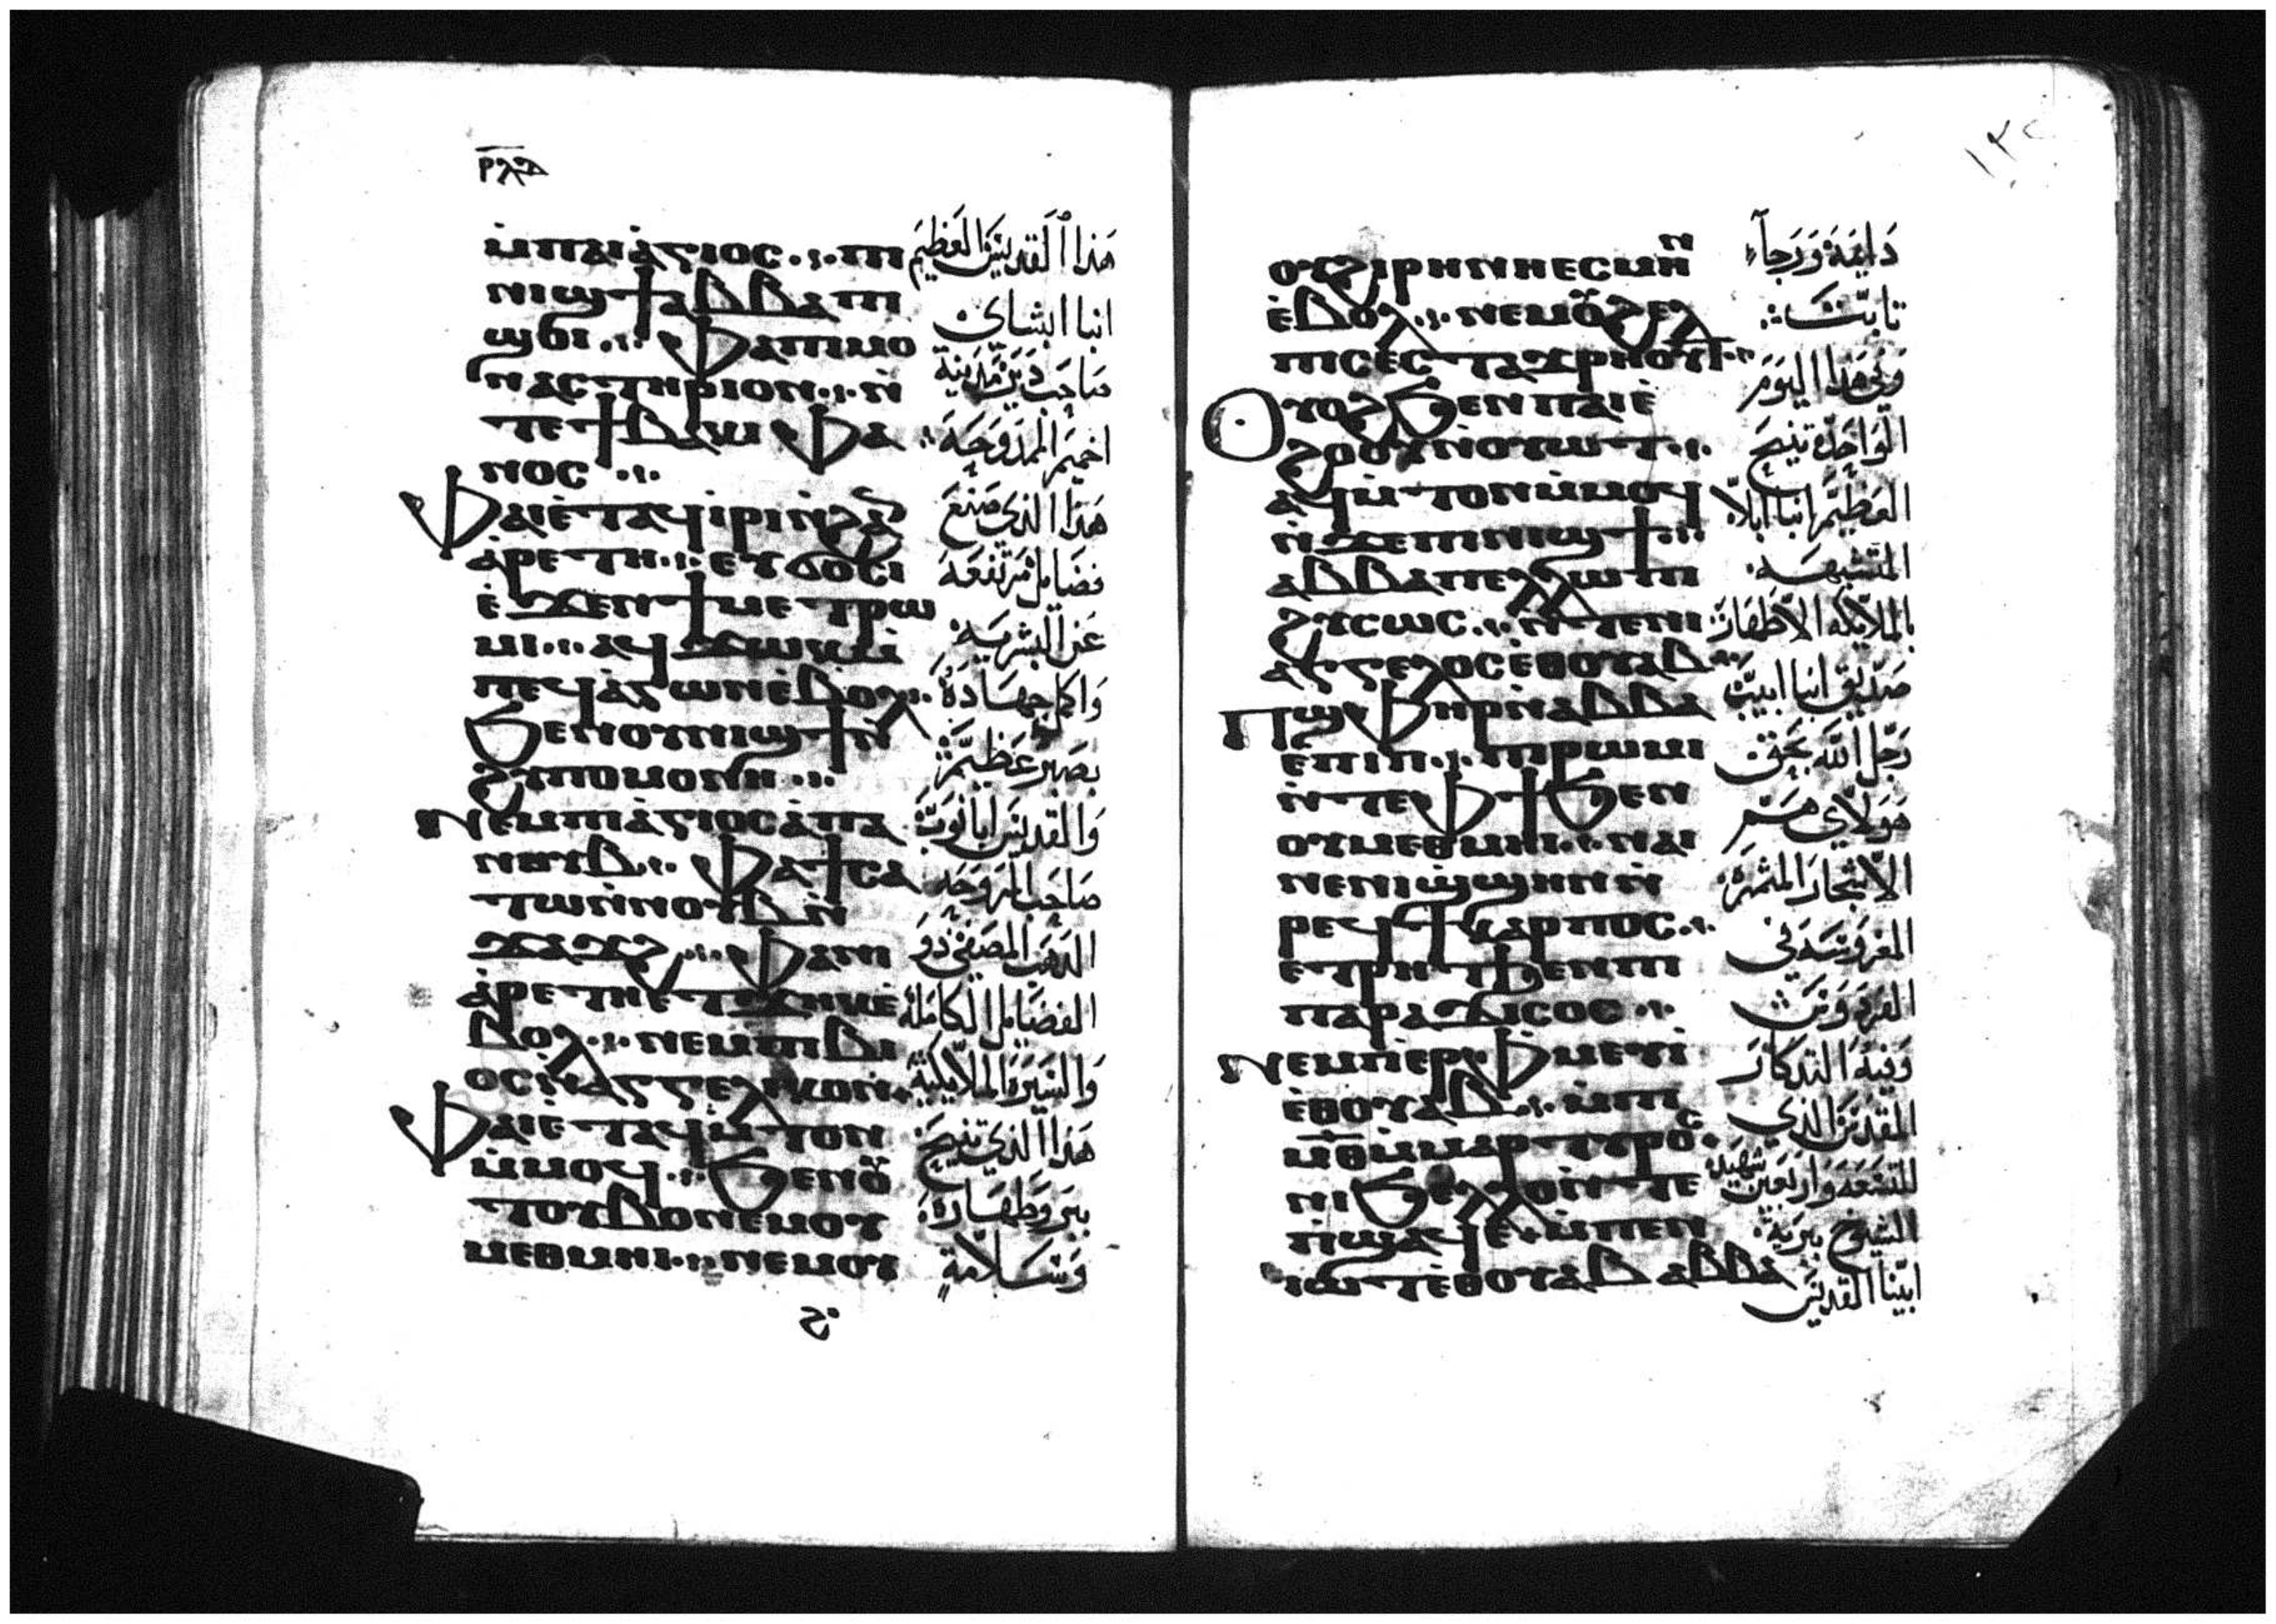 ⲣⲗⲇ
ⲙ̀ⲡⲁⲓⲁ̀ⲅⲓⲟⲥ ⲡⲓ
ⲛⲓϣϯ ⲁⲃⲃⲁ ⲡⲓ
ϣⲟⲓ ⲫⲁⲡⲓⲙⲟ
ⲛⲁⲥⲧⲏⲣⲓⲟⲛ ⲛ̀
ⲧⲉϯⲃⲁⲕⲓ ⲫⲁ
ⲛⲟⲥ
ⲫⲁⲓⲉ̀ⲧⲁϥⲓ̀ⲣⲓⲛ̀ϩⲁⲛ
ⲁ̀ⲣⲉⲧⲏ ⲉⲩϭⲟⲥⲓ
ⲉ̀ϫⲉⲛϯⲙⲉⲧⲣⲱ
ⲙⲓ ⲁϥϫⲱⲕⲙ̀
ⲡⲉϥⲁ̀ⲅⲱⲛⲉ̀ⲃⲟⲗ
ϧⲉⲛⲟⲩⲛⲓϣϯⲛ̀
ϩⲩⲡⲟⲙⲟⲛⲏ
ⲛⲉⲙⲡⲓⲁ̀ⲅⲓⲟⲥⲁ̀ⲡⲁ
ⲛⲟⲩⲃ ⲫⲁϯⲥⲁ
ⲧⲱⲛ̀ⲛⲟⲩⲃⲛ̀
ϫⲁϫϩ ⲫⲁⲛⲓ
ⲁ̀ⲣⲉⲧⲏⲉⲧϫⲏⲕⲉ̀
ⲃⲟⲗ ⲛⲉⲙⲡⲓⲃⲓ
ⲟⲥⲛ̀ⲁⲅⲅⲉⲗⲓⲕⲟⲛ
ⲫⲁⲓⲉ̀ⲧⲁϥⲙ̀ⲧⲟⲛ
ⲙ̀ⲙⲟϥ ϧⲉⲛⲟⲩ
ⲧⲟⲩⲃⲟⲛⲉⲙⲟⲩ
ⲙⲉⲑⲙⲏⲓ ⲛⲉⲙⲟⲩ
هَذا القديسَ العَظيم
انبا ابشاي
صَاحب دَير مَدينة
اخميم الممدوحَة
هَذا الذي صَنع
فضَايل مُرتفعَة
عَن البشريَة
وَاكمل جهَادَهُ
بصَبر عَظيم
وَالقديسَ ابا نوب
صَاحب المروحَه
الذهَب المصفي ذو
الفضَايل الكاملة
وَالسيرة الملايكية
هَذا الذي تنيح
ببر وَطهَارة
وَسَلامة
١٣٤
ⲟⲩϩⲓⲣⲏⲛⲏⲉⲥⲙⲏⲛ
ⲉ̀ⲃⲟⲗ ⲛⲉⲙⲟⲩϩⲉⲗ
ⲡⲓⲥⲉⲥⲧⲁϫⲣⲏⲟⲩⲧ
ⲟⲩⲟϩϧⲉⲛⲡⲁⲓⲉ̀
ϩⲟⲟⲩⲛ̀ⲟⲩⲱⲧ
ⲁϥⲙ̀ⲧⲟⲛⲙ̀ⲙⲟϥ
ⲛ̀ϫⲉⲡⲓⲛⲓϣϯ
ⲁⲃⲃⲁⲡⲉϩⲱⲡⲓ
ϩⲩⲥⲱⲥ ⲛ̀ⲧⲉⲛⲓ
ⲁⲅⲅⲉⲗⲟⲥⲉ̀ⲑⲟⲩⲁⲃ
ⲡϣⲫⲏⲣⲛ̀ⲁⲃⲃⲁ
ⲉ̀ⲡⲓⲡ ⲡⲓⲣⲱⲙⲓ
ⲛ̀ⲧⲉⲫϯϧⲉⲛ
ⲟⲩⲙⲉⲑⲙⲏⲓ ⲛⲁⲓ
ⲛⲉⲛⲓϣ̀ϣⲏⲛⲛ̀
ⲣⲉϥϯⲕⲁⲣⲡⲟⲥ
ⲉⲧⲣⲏⲧϧⲉⲛⲡⲓ
ⲡⲁⲣⲁⲇⲓⲥⲟⲥ
ⲛⲉⲙⲡⲉⲣⲫⲙⲉⲩⲓ̀
ⲉ̀ⲑⲟⲩⲁⲃ ⲙ̀ⲡⲓ
ⲙⲑ ⲙ̀ⲙⲁⲣⲧⲩⲣⲟⲥ
ⲛⲓϧⲉⲗⲗⲟⲓⲛ̀ⲧⲉ
ⲡ̀ϣⲁϥⲉ ⲙ̀ⲡⲉⲛ
ⲓⲱⲧⲉ̀ⲑⲟⲩⲁⲃ ⲁⲃⲃⲁ
دَايمَة وَرَجآء
ثابت
وَفي هَذا اليَومَ
الوَاحِد تنيح
العَظيم انبا ابلاّ
المتشبهَه
بالملايكه الاطهَار
صَديق انبا ابيب
رَجل الله بحَق
هَولاي هَم
الاشجار المثمرة
المغروسَه في
الفردوسَ
وَفيهَ التذكار
المقدسَ الذي
للتسعَه وَاربَعين شهيد
الشيوخ ببرية
ابينا القديسَ